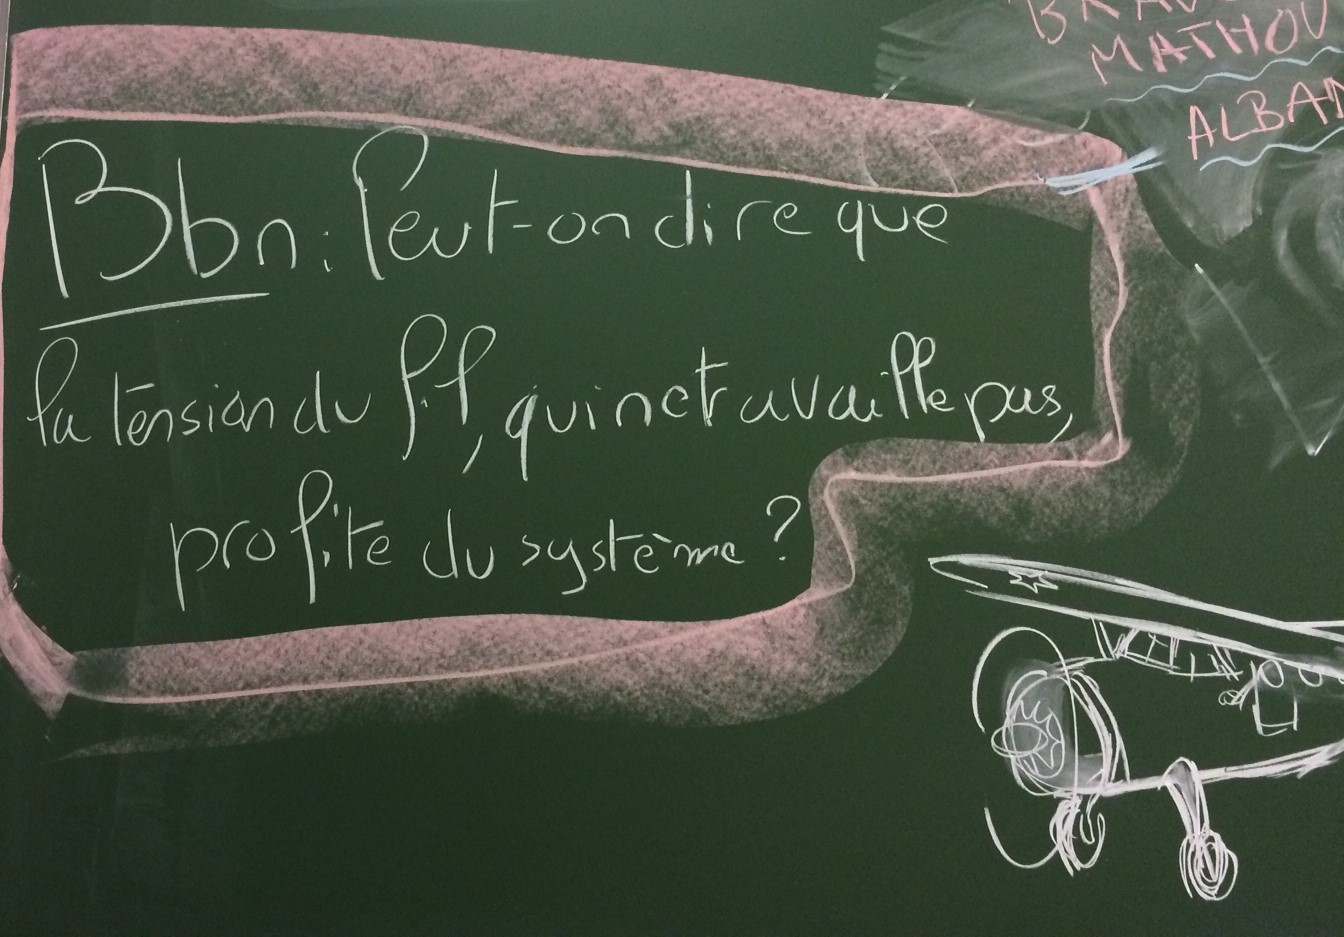 BRAV
MATHOU
ALBAN
Bbn : Peut-on dire que
la tension du fil, qui ne travaille pas,
profite du système ?